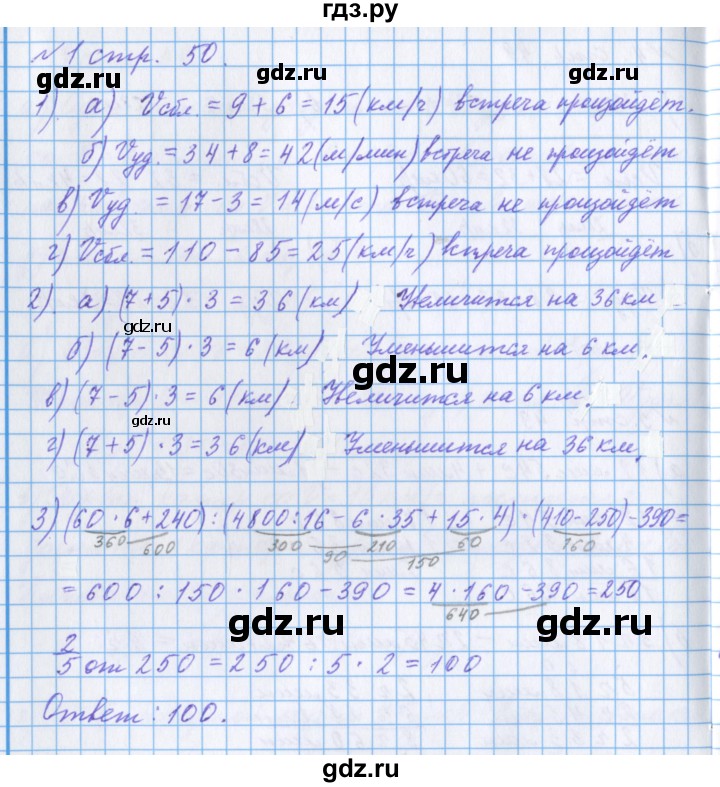 гдз.ру
№ 1 стр. 50.
1) а) Vсбл. = 9 + 6 = 15 (км/ч) встреча произойдёт.
б) Vуд. = 34 + 8 = 42 (м/мин) встреча не произойдёт
в) Vуд. = 17 - 3 = 14 (м/с) встреча не произойдёт
г) Vсбл. = 110 - 85 = 25 (км/ч) встреча произойдёт
2) а) (7 + 5) · 3 = 36 (км) Увеличится на 36 км
б) (7 - 5) · 3 = 6 (км) Уменьшится на 6 км.
в) (7 - 5) · 3 = 6 (км) Увеличится на 6 км.
г) (7 + 5) · 3 = 36 (км) Уменьшится на 36 км.
3) (60 · 6 + 240) : (4800 : 16 - 6 · 35 + 15 · 4) · (410 - 250) - 390 =
360 600 300 90 210 150 60 160
= 600 : 150 · 160 - 390 = 4 · 160 - 390 = 250
640
2/5 от 250 = 250 : 5 · 2 = 100
Ответ : 100.
gdz.ru
gdz.ru
gdz.ru
gdz.ru
gdz.ru
gdz.ru
gdz.ru
gdz.ru
gdz.ru
gdz.ru
гдз.ру